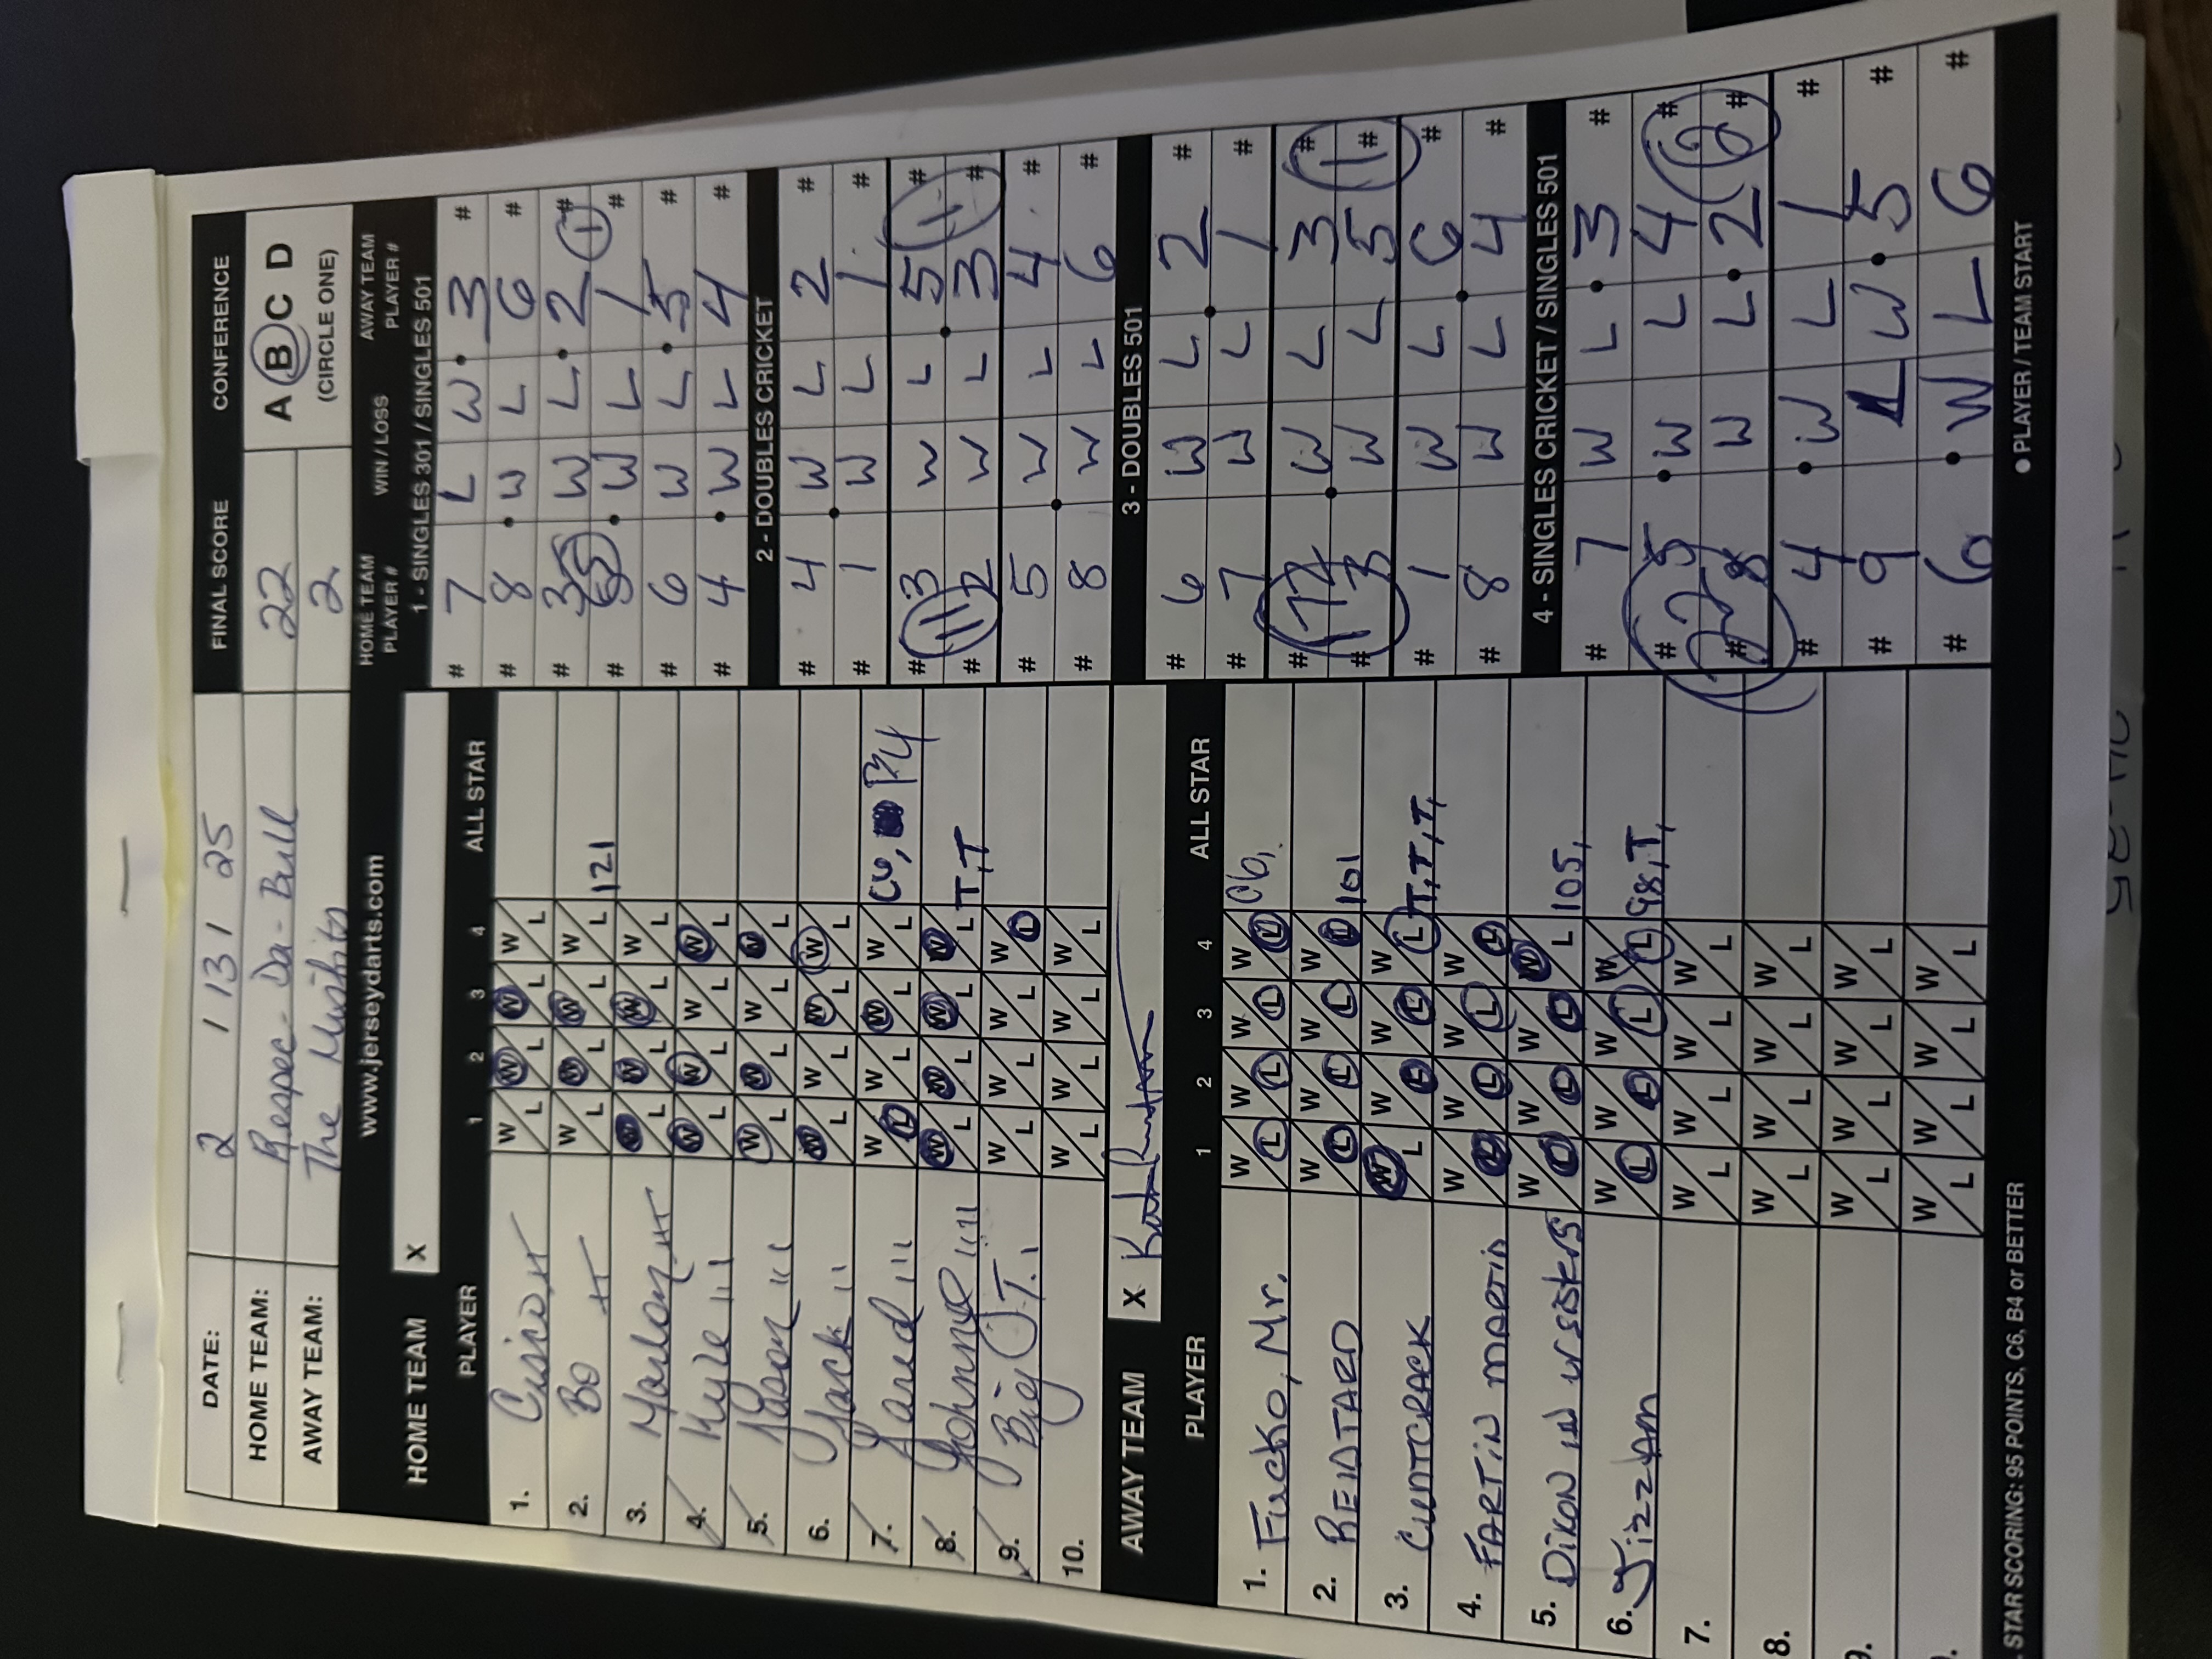 DATE: 2 / 13 / 25 FINAL SCORE CONFERENCE
HOME TEAM: Respec-Da-Bull 22 A B C D
AWAY TEAM: The Mishits 2 (CIRCLE ONE)
www.jerseydarts.com
HOME TEAM X
PLAYER 1 2 3 4 ALL STAR
1. Cisco W L W L W L W L
2. Bo W L W L W L W L 121
3. Marlon W L W L W L W L
4. Kyle III W L W L W L W L
5. Jason III W L W L W L W L
6. Jack II W L W L W L W L
7. Jared III W L W L W L W L C6, B4
8. Johnny IIII W L W L W L W L T,T
9. Big J.T. I W L W L W L W L
10. W L W L W L W L
AWAY TEAM X
PLAYER 1 2 3 4 ALL STAR
1. Fucko, Mr. W L W L W L W L C6,
2. REIDTARD W L W L W L W L 101
3. CUNTCRACK W L W L W L W L T,T,T,
4. FARTIN MARTIN W L W L W L W L
5. DIXON IN URSISTERS W L W L W L W L 105,
6. Jizzam W L W L W L W L 98,T,
7. W L W L W L W L
8. W L W L W L W L
9. W L W L W L W L
W L W L W L W L
STAR SCORING: 95 POINTS, C6, B4 or BETTER
HOME TEAM PLAYER # WIN / LOSS AWAY TEAM PLAYER #
1 - SINGLES 301 / SINGLES 501
# 7 L W 3 #
# 8 W L 6 #
# 3 W L 2 # 1
# 5 W L 1 #
# 6 W L 5 #
# 4 W L 4 #
2 - DOUBLES CRICKET
# 4 W L 2 #
# 1 W L 1 #
# 3 W L 5 #
# 11 2 W L 3 # 1
# 5 W L 4 #
# 8 W L 6 #
3 - DOUBLES 501
# 6 W L 2 #
# 7 W L 1 #
# 17 2 W L 3 #
# 3 W L 5 # 1
# 1 W L 6 #
# 8 W L 4 #
4 - SINGLES CRICKET / SINGLES 501
# 7 W L 3 #
# 5 W L 4 #
# 22 8 W L 2 # 2
# 4 W L 1 #
# 9 L W 5 #
# 6 W L 6 #
● PLAYER / TEAM START